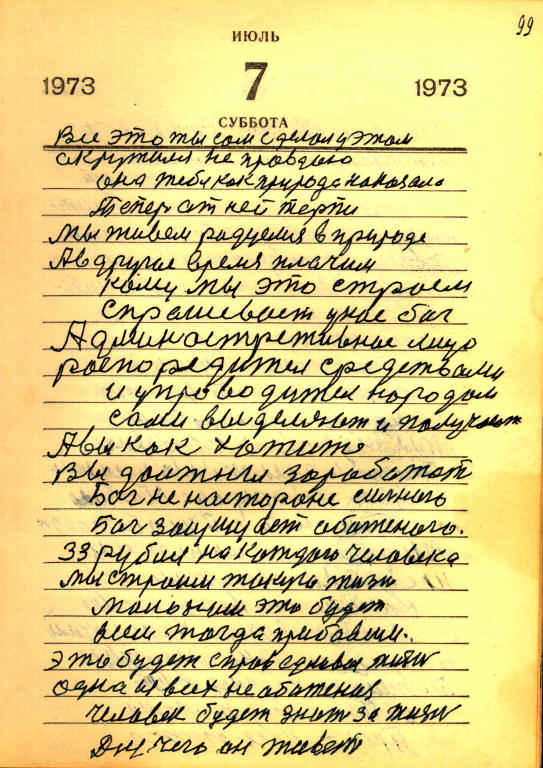 99
ИЮЛЬ
1973 7 1973
СУББОТА
Все это ты сам сделал у этом
окружил не правдою
она тебя как природа наказала
Тепер от ней терпи
Мы живем радуемся в природе
А в другое время плачим
кому мы это строем
спрашивает у нас бог
Административное лицо
распоредител средствами
и упроводител народом
сами выделяют и получают
А вы как хотите
Вы должны заработат
Бог не настороне сильного
Бог защищает обаженого.
33 рубля на каждого человека
мы строим такую жизн
малоним это будет
всем тогда прибавим.
это будет справедливая жизн
одна из всех не обаженая
человек будет знат за жизн
Для чего он живет